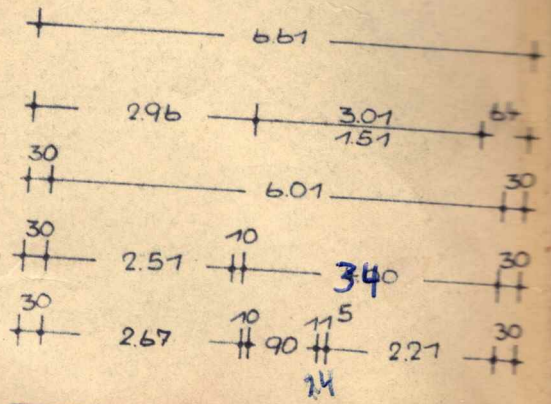 6.61
2.96 3.01 64
1.51
30 6.01 30
30 2.51 10 340 30
30 2.67 10 90 11 5 2.21 30
24